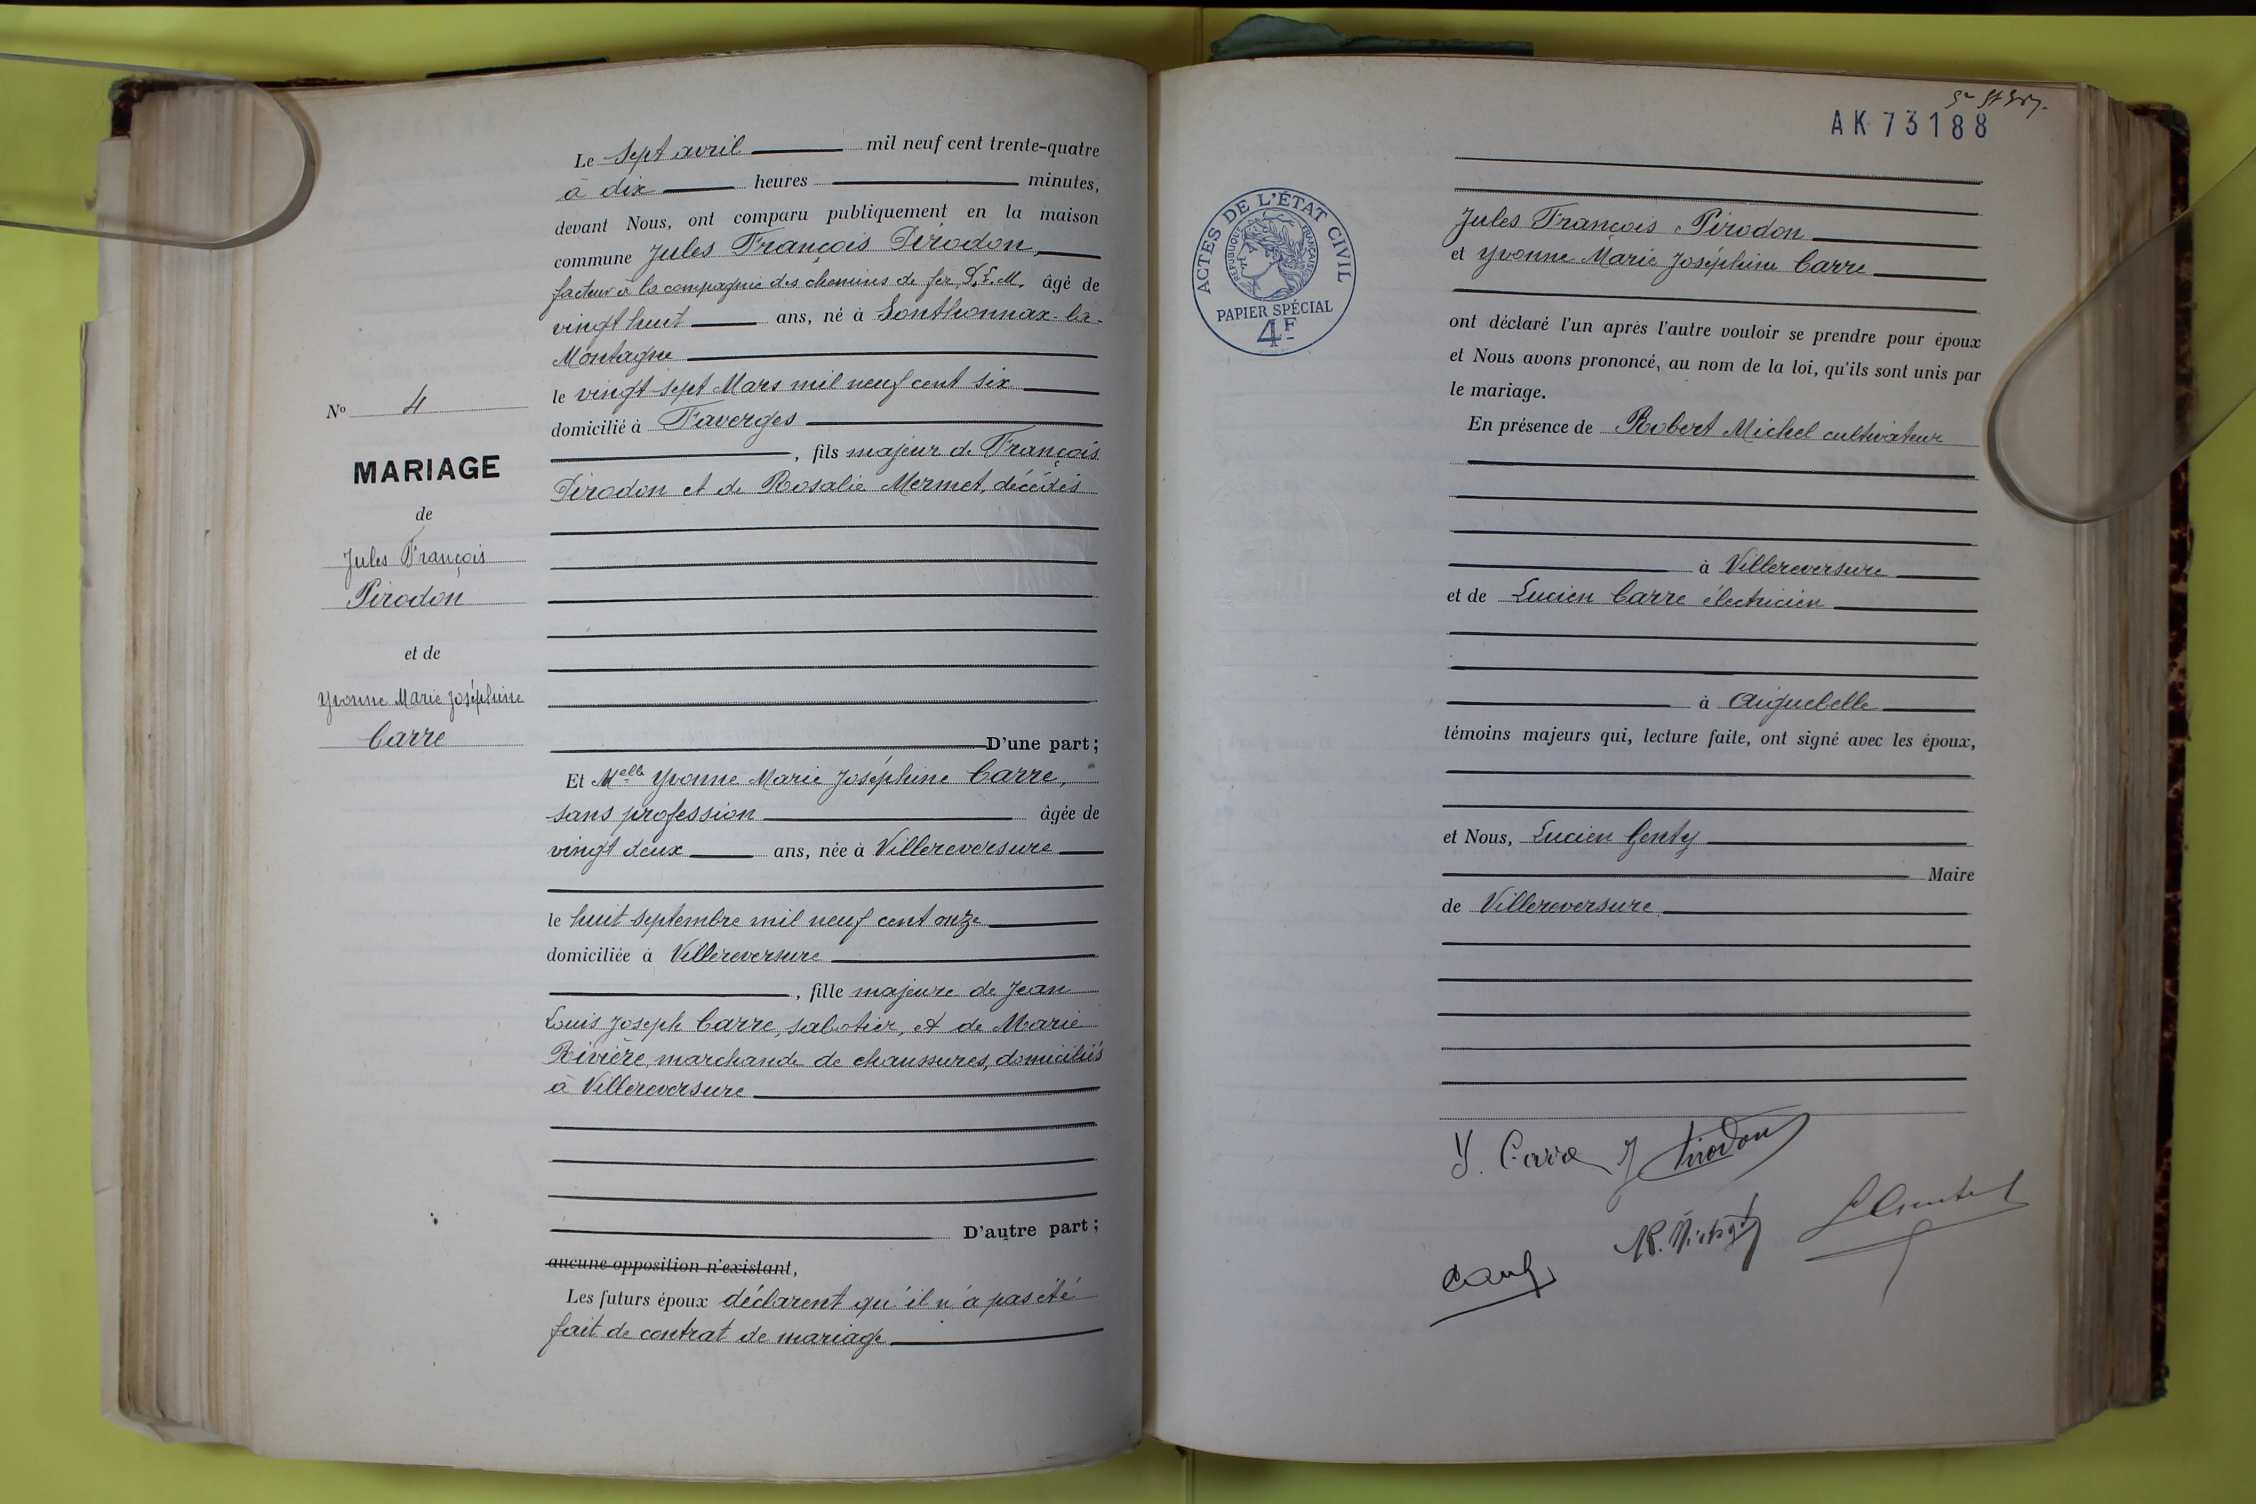 Le sept avril mil neuf cent trente-quatre
à dix heures minutes,
devant Nous, ont comparu publiquement en la maison
commune Jules François Pirodon,
facteur à la compagnie des chemins de fer P.L.M. âgé de
vingt huit ans, né à Sonthonnax-la-
Montagne
le vingt sept Mars mil neuf cent six
domicilié à Faverges
, fils majeur de François
Pirodon et de Rosalie Mermet, décédés
D'une part;
Et Melle Yvonne Marie Joséphine Carre,
sans profession âgée de
vingt deux ans, née à Villereversure
le huit septembre mil neuf cent onze
domiciliée à Villereversure
, fille majeure de Jean
Louis Joseph Carre, sabotier, et de Marie
Rivière, marchande de chaussures, domiciliés
à Villereversure
D'autre part;
aucune opposition n'existant,
Les futurs époux déclarent qu'il n'a pas été
fait de contrat de mariage
No 4
MARIAGE
de
Jules François
Pirodon
et de
Yvonne Marie Joséphine
Carre
AK 73188
ACTES DE L'ÉTAT CIVIL
RÉPUBLIQUE FRANÇAISE
PAPIER SPÉCIAL
4F
Jules François Pirodon
et Yvonne Marie Joséphine Carre
ont déclaré l'un après l'autre vouloir se prendre pour époux
et Nous avons prononcé, au nom de la loi, qu'ils sont unis par
le mariage.
En présence de Robert Michel cultivateur
à Villereversure
et de Lucien Carre électricien
à Aiguebelle
témoins majeurs qui, lecture faite, ont signé avec les époux,
et Nous, Lucien Genty
Maire
de Villereversure
Y. Carre J Pirodon
R. Michel